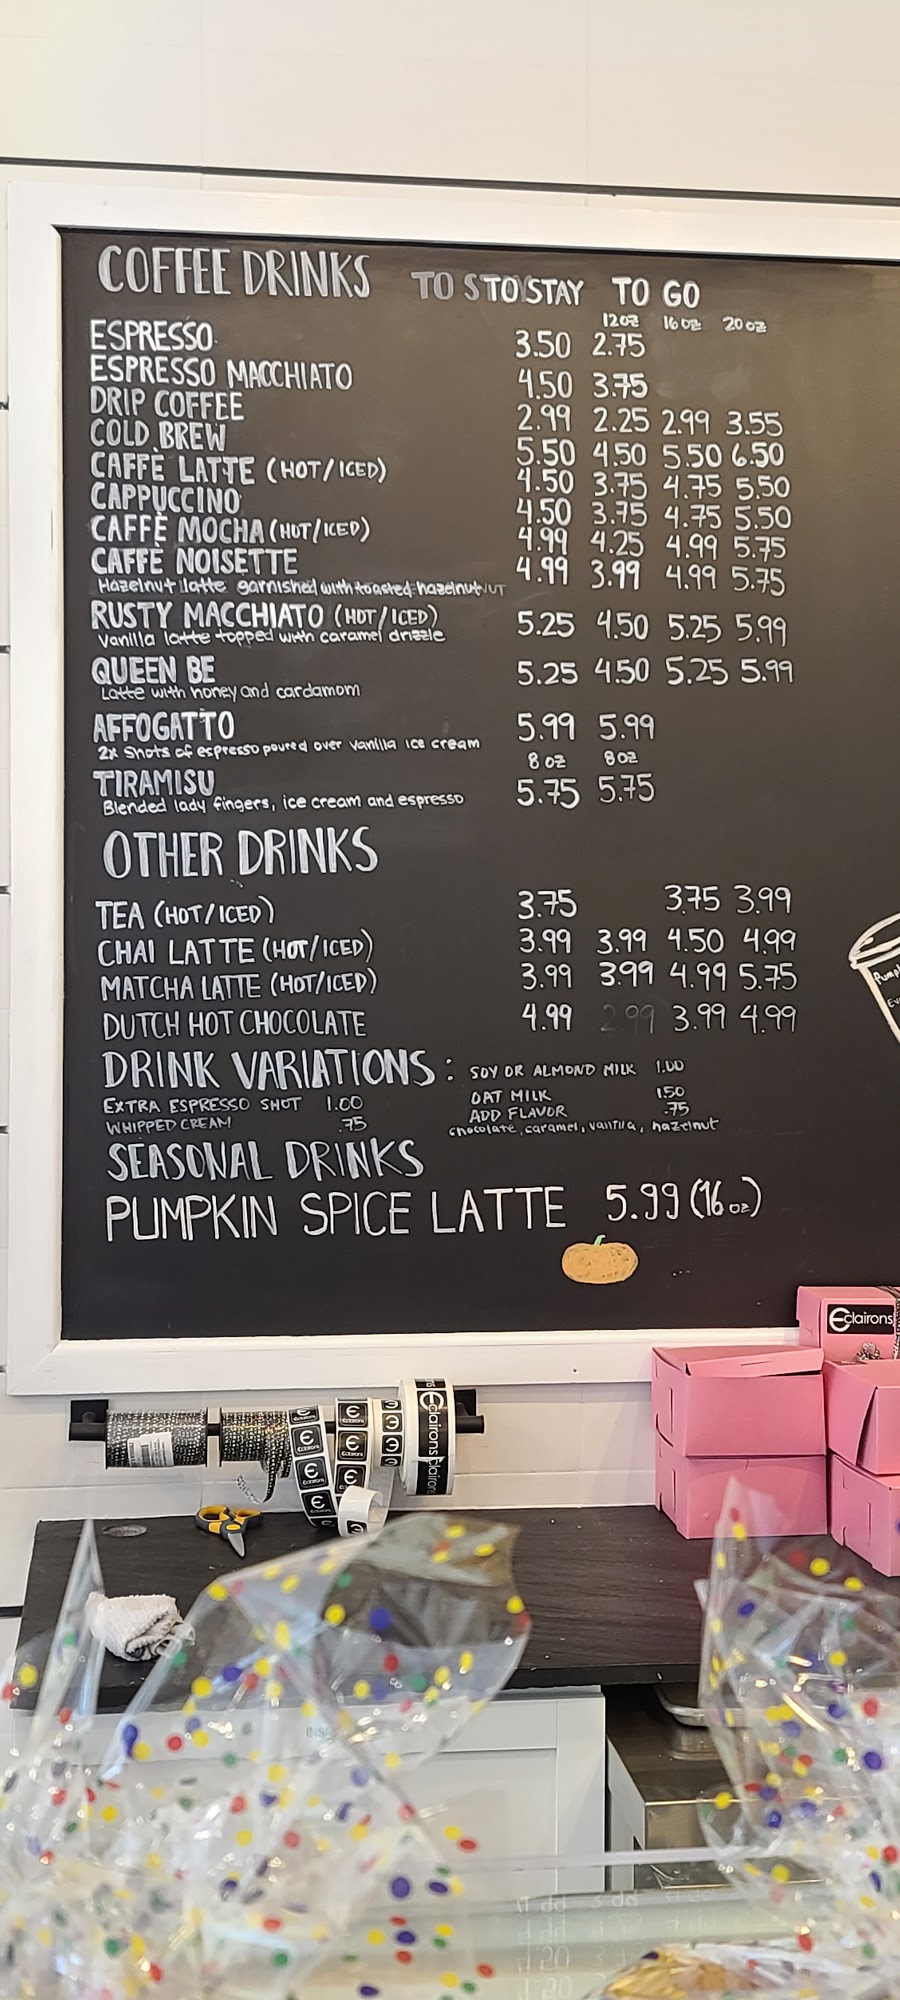 COFFEE DRINKS TO STAY TO GO
12oz 16oz 20oz
ESPRESSO 3.50 2.75
ESPRESSO MACCHIATO 4.50 3.75
DRIP COFFEE 2.99 2.25 2.99 3.55
COLD BREW 5.50 4.50 5.50 6.50
CAFFÈ LATTE (HOT/ICED) 4.50 3.75 4.75 5.50
CAPPUCCINO 4.50 3.75 4.75 5.50
CAFFÈ MOCHA (HOT/ICED) 4.99 4.25 4.99 5.75
CAFFÈ NOISETTE 4.99 3.99 4.99 5.75
Hazelnut latte garnished with toasted hazelnut
RUSTY MACCHIATO (HOT/ICED) 5.25 4.50 5.25 5.99
Vanilla latte topped with caramel drizzle
QUEEN BE 5.25 4.50 5.25 5.99
Latte with honey and cardamom
AFFOGATTO 5.99 5.99
2x Shots of espresso poured over vanilla ice cream 8oz 8oz
TIRAMISU 5.75 5.75
Blended lady fingers, ice cream and espresso
OTHER DRINKS
TEA (HOT/ICED) 3.75 3.75 3.99
CHAI LATTE (HOT/ICED) 3.99 3.99 4.50 4.99
MATCHA LATTE (HOT/ICED) 3.99 3.99 4.99 5.75
DUTCH HOT CHOCOLATE 4.99 2.99 3.99 4.99
DRINK VARIATIONS: SOY OR ALMOND MILK 1.00
EXTRA ESPRESSO SHOT 1.00 OAT MILK 1.50
WHIPPED CREAM .75 ADD FLAVOR .75
chocolate, caramel, vanilla, hazelnut
SEASONAL DRINKS
PUMPKIN SPICE LATTE 5.99 (16oz)
Eclairons
Eclairons